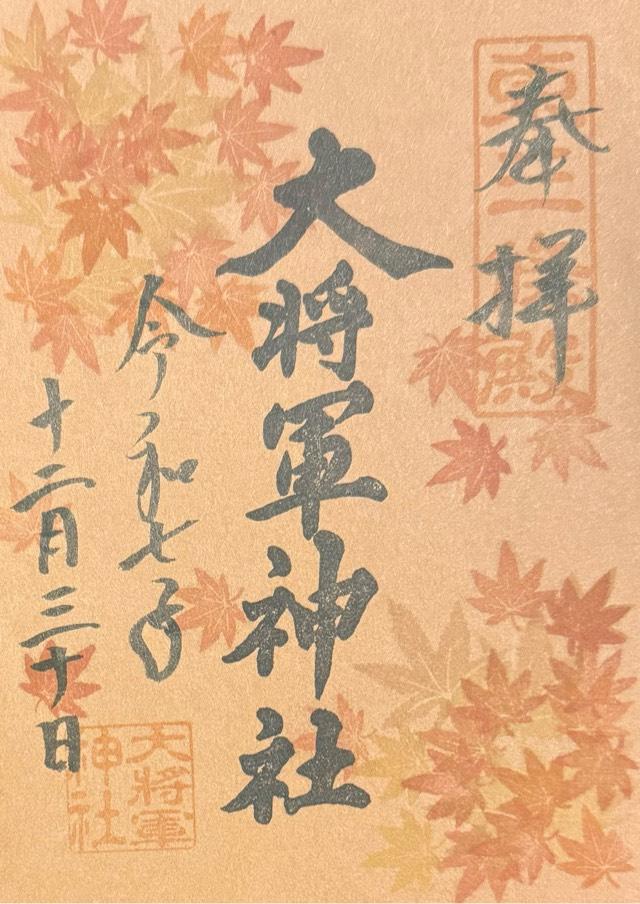 奉拝
大将軍神社
令和七年
十二月三十日
大将軍
神社